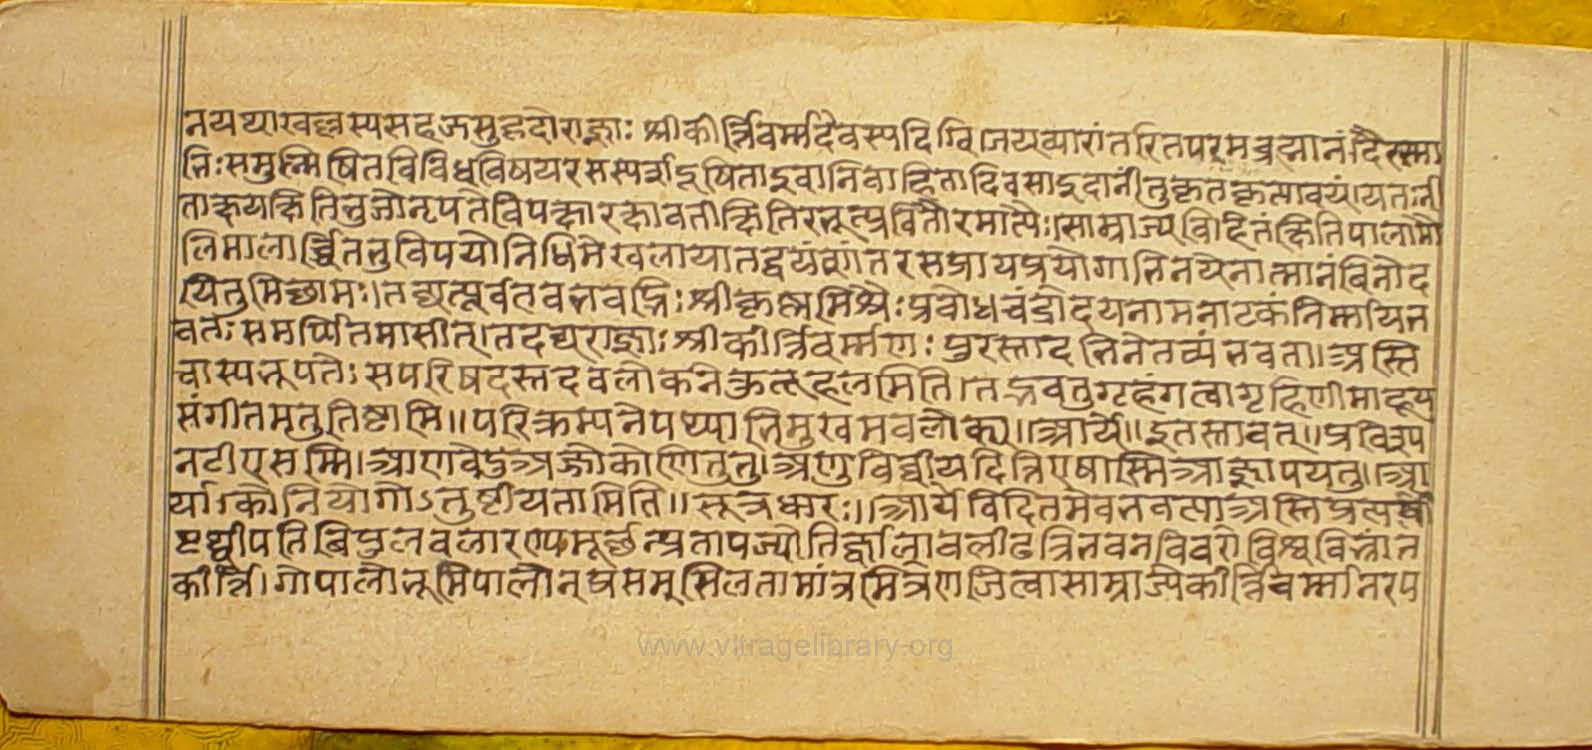 नयथाखल्वस्यसहजसुहृदोराज्ञाः श्रीकीर्त्तिवर्म्मदेवस्यदिग्विजयव्यापारांतरितपरमब्रह्मानंदैरस्मा
भिः समुन्मिषितविविधविषयरसस्पर्शदूषिताइवातिवाहितादिवसाइदानींतुकृतकृत्यावयं।यतःनी
ताक्षयंक्षितिभुजोनृपतेर्विपक्षारक्षावतीक्षितिरभूत्प्रथितैरमात्यैः।साम्राज्यंविहितंक्षितिपालमौ
लिमालार्च्चितंभुविपयोनिधिमेखलायातद्वयंशांतरसप्रायप्रयोगाभिनयेनात्मानंविनोद
यितुमिछामः।तद्यत्पूर्वतत्रभवद्भिःश्रीकृष्णमिश्रैः प्रबोधचंद्रोदयनामनाटकंनिर्म्मायभ
वतः समर्प्पितमासीत्।तदद्यराज्ञाः श्रीकीर्त्तिवर्म्मणः पुरस्तादभिनेतव्यंभवता॥अस्ति
चास्यभूपतेः सपरिषदस्तदवलोकनेकुतूहलमिति।तद्भवतुगृहंगत्वागृहिणीमाहूय
संगीतमनुतिष्टामि॥परिक्रम्यनेपथ्याभिमुखमवलोक्य॥आर्ये॥इतस्तावत्॥प्रविश्य
नटीएसम्मि।आणवेदुअज्जोकोणिओ
र्याऽकोनियोगोऽनुष्टीयतामिति॥सूत्रधारः॥आर्येविदितमेवभवत्याअस्तिप्रत्यर्थी
पृथ्वीपतिविपुलबलारण्यमूर्छत्प्रतापज्योतिर्ज्वालावलीढत्रिभुवनविवरोविश्वविश्रांत
कीर्त्तिः।गोपालोभूमिपालान्प्रसभमसिलतामांत्रमित्रेणजित्वासाम्राज्येकीर्त्तिवर्म्मानरप
www.vitragelibrary-org